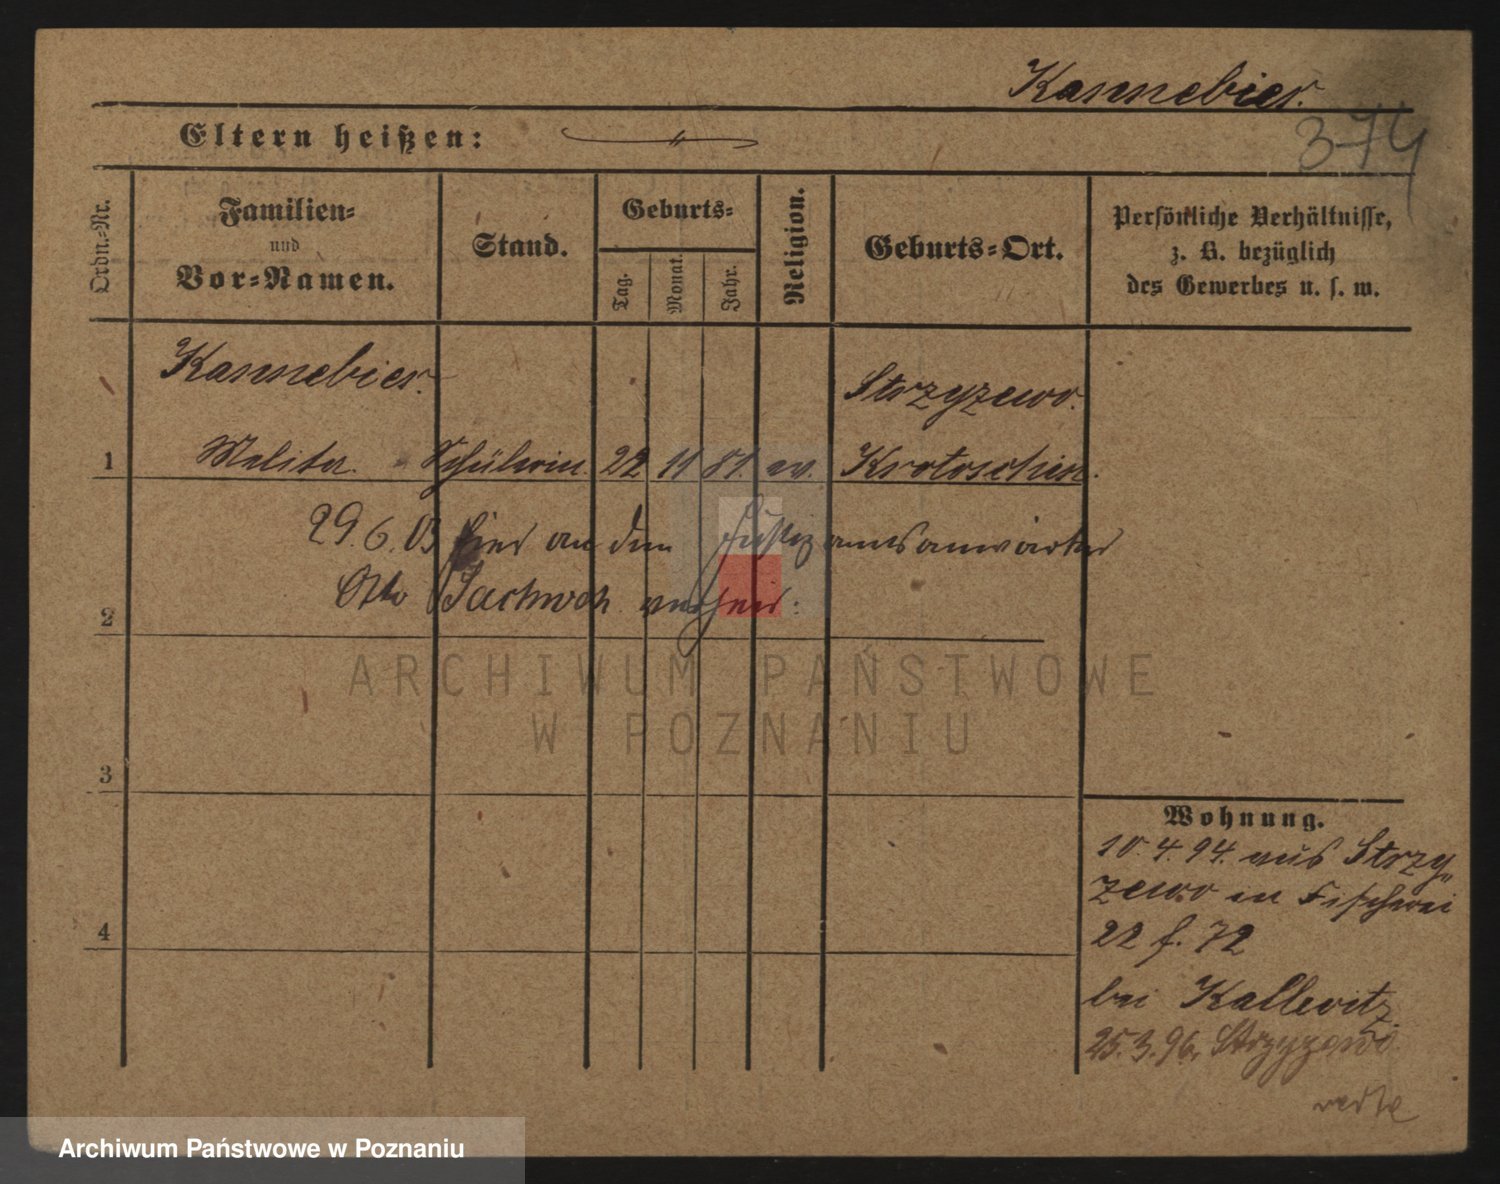 Kannebier.
374
Eltern heißen: "
Ordn.-Nr.
Familien-
und
Vor-Namen.
Stand.
Geburts-
Tag.
Monat.
Jahr.
Religion.
Geburts-Ort.
Persönliche Verhältnisse,
z. B. bezüglich
des Gewerbes u. s. w.
Kannebier.
Strzyzewo.
1 Melita. Schülerin 22 11 81. ev. Krotoschin.
29.6.03 hier an den Justizamtsanwärter
2 Otto Sachwoh verheir:
ARCHIWUM PAŃSTWOWE
W POZNANIU
3
4
Wohnung.
10.4.94. aus Strzy„
zewo in Fischerei
22 f. 72
bei Kallewitz
25.3.96. Strzyzewo
Archiwum Państwowe w Poznaniu